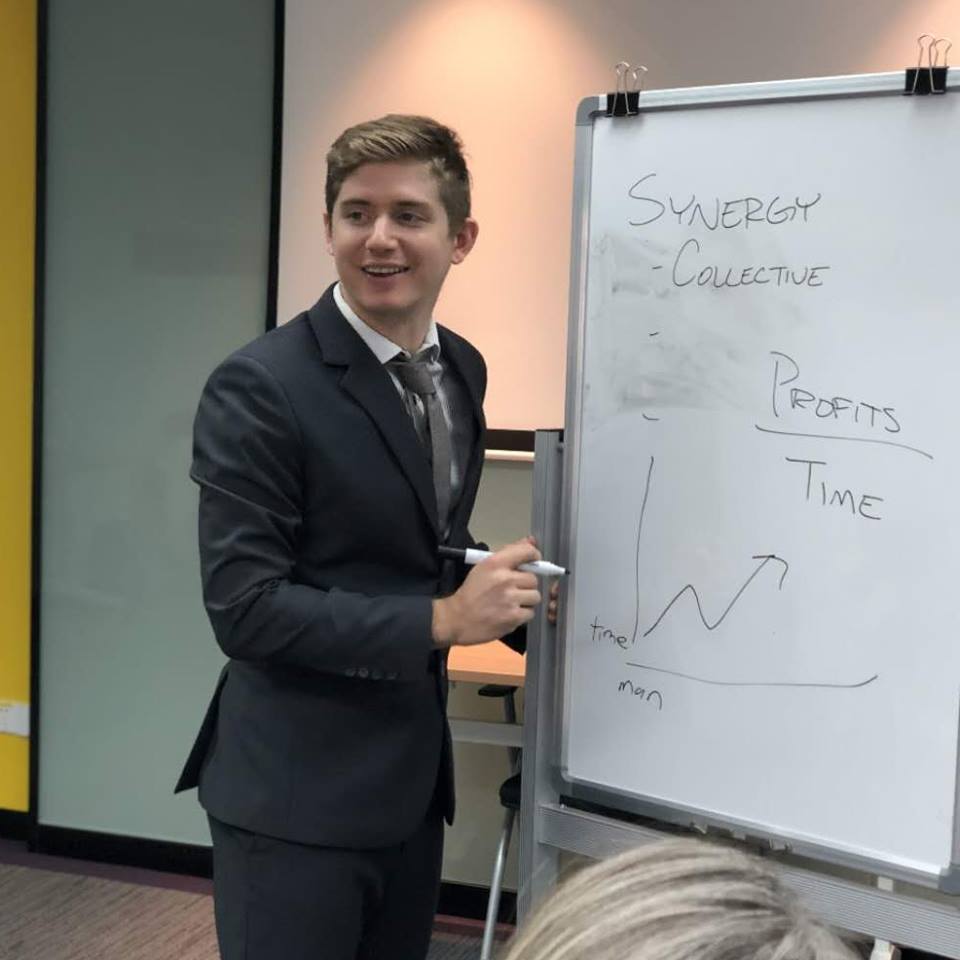 SYNERGY
- COLLECTIVE
-
-
PROFITS
TIME
time
man